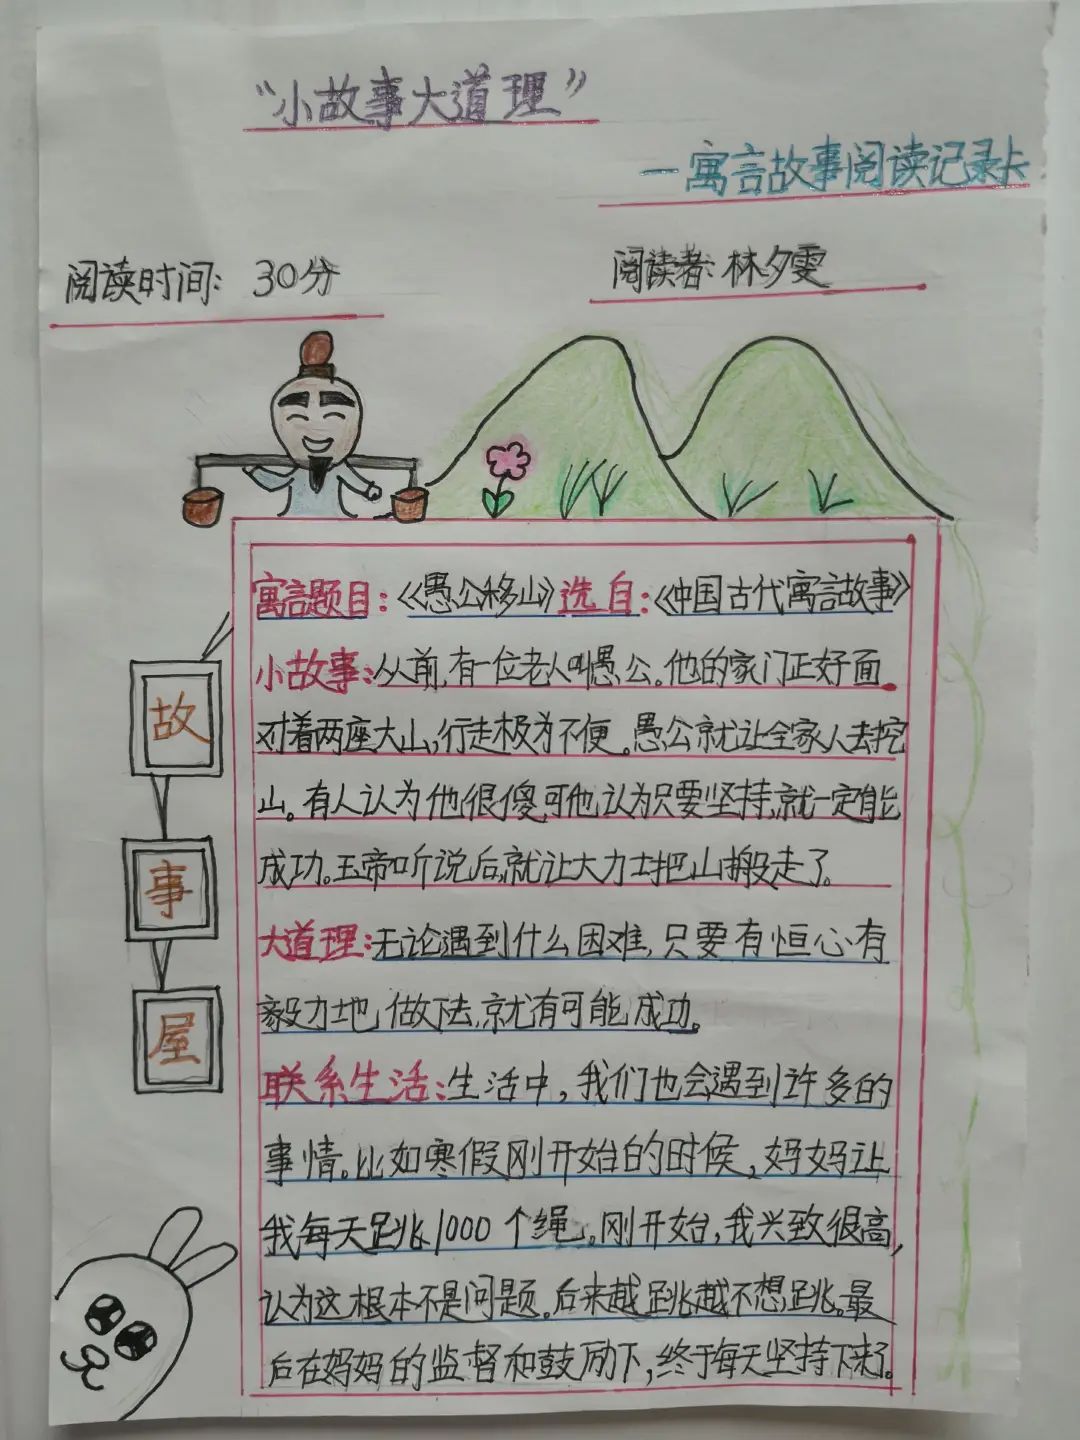 “小故事大道理”
—寓言故事阅读记录卡
阅读时间: 30分
阅读者: 林夕雯
寓言题目:《愚公移山》选自:《中国古代寓言故事》
小故事:从前,有一位老人叫愚公。他的家门正好面
对着两座大山,行走极为不便。愚公就让全家人去挖
山。有人认为他很傻,可他认为只要坚持,就一定能
成功。玉帝听说后,就让大力士把山搬走了。
大道理:无论遇到什么困难,只要有恒心有
毅力地做下去,就有可能成功。
联系生活:生活中,我们也会遇到许多的
事情。比如寒假刚开始的时候,妈妈让
我每天跳1000个绳。刚开始,我兴致很高,
认为这根本不是问题。后来越跳越不想跳。最
后在妈妈的监督和鼓励下,终于每天坚持下来了。
故
事
屋